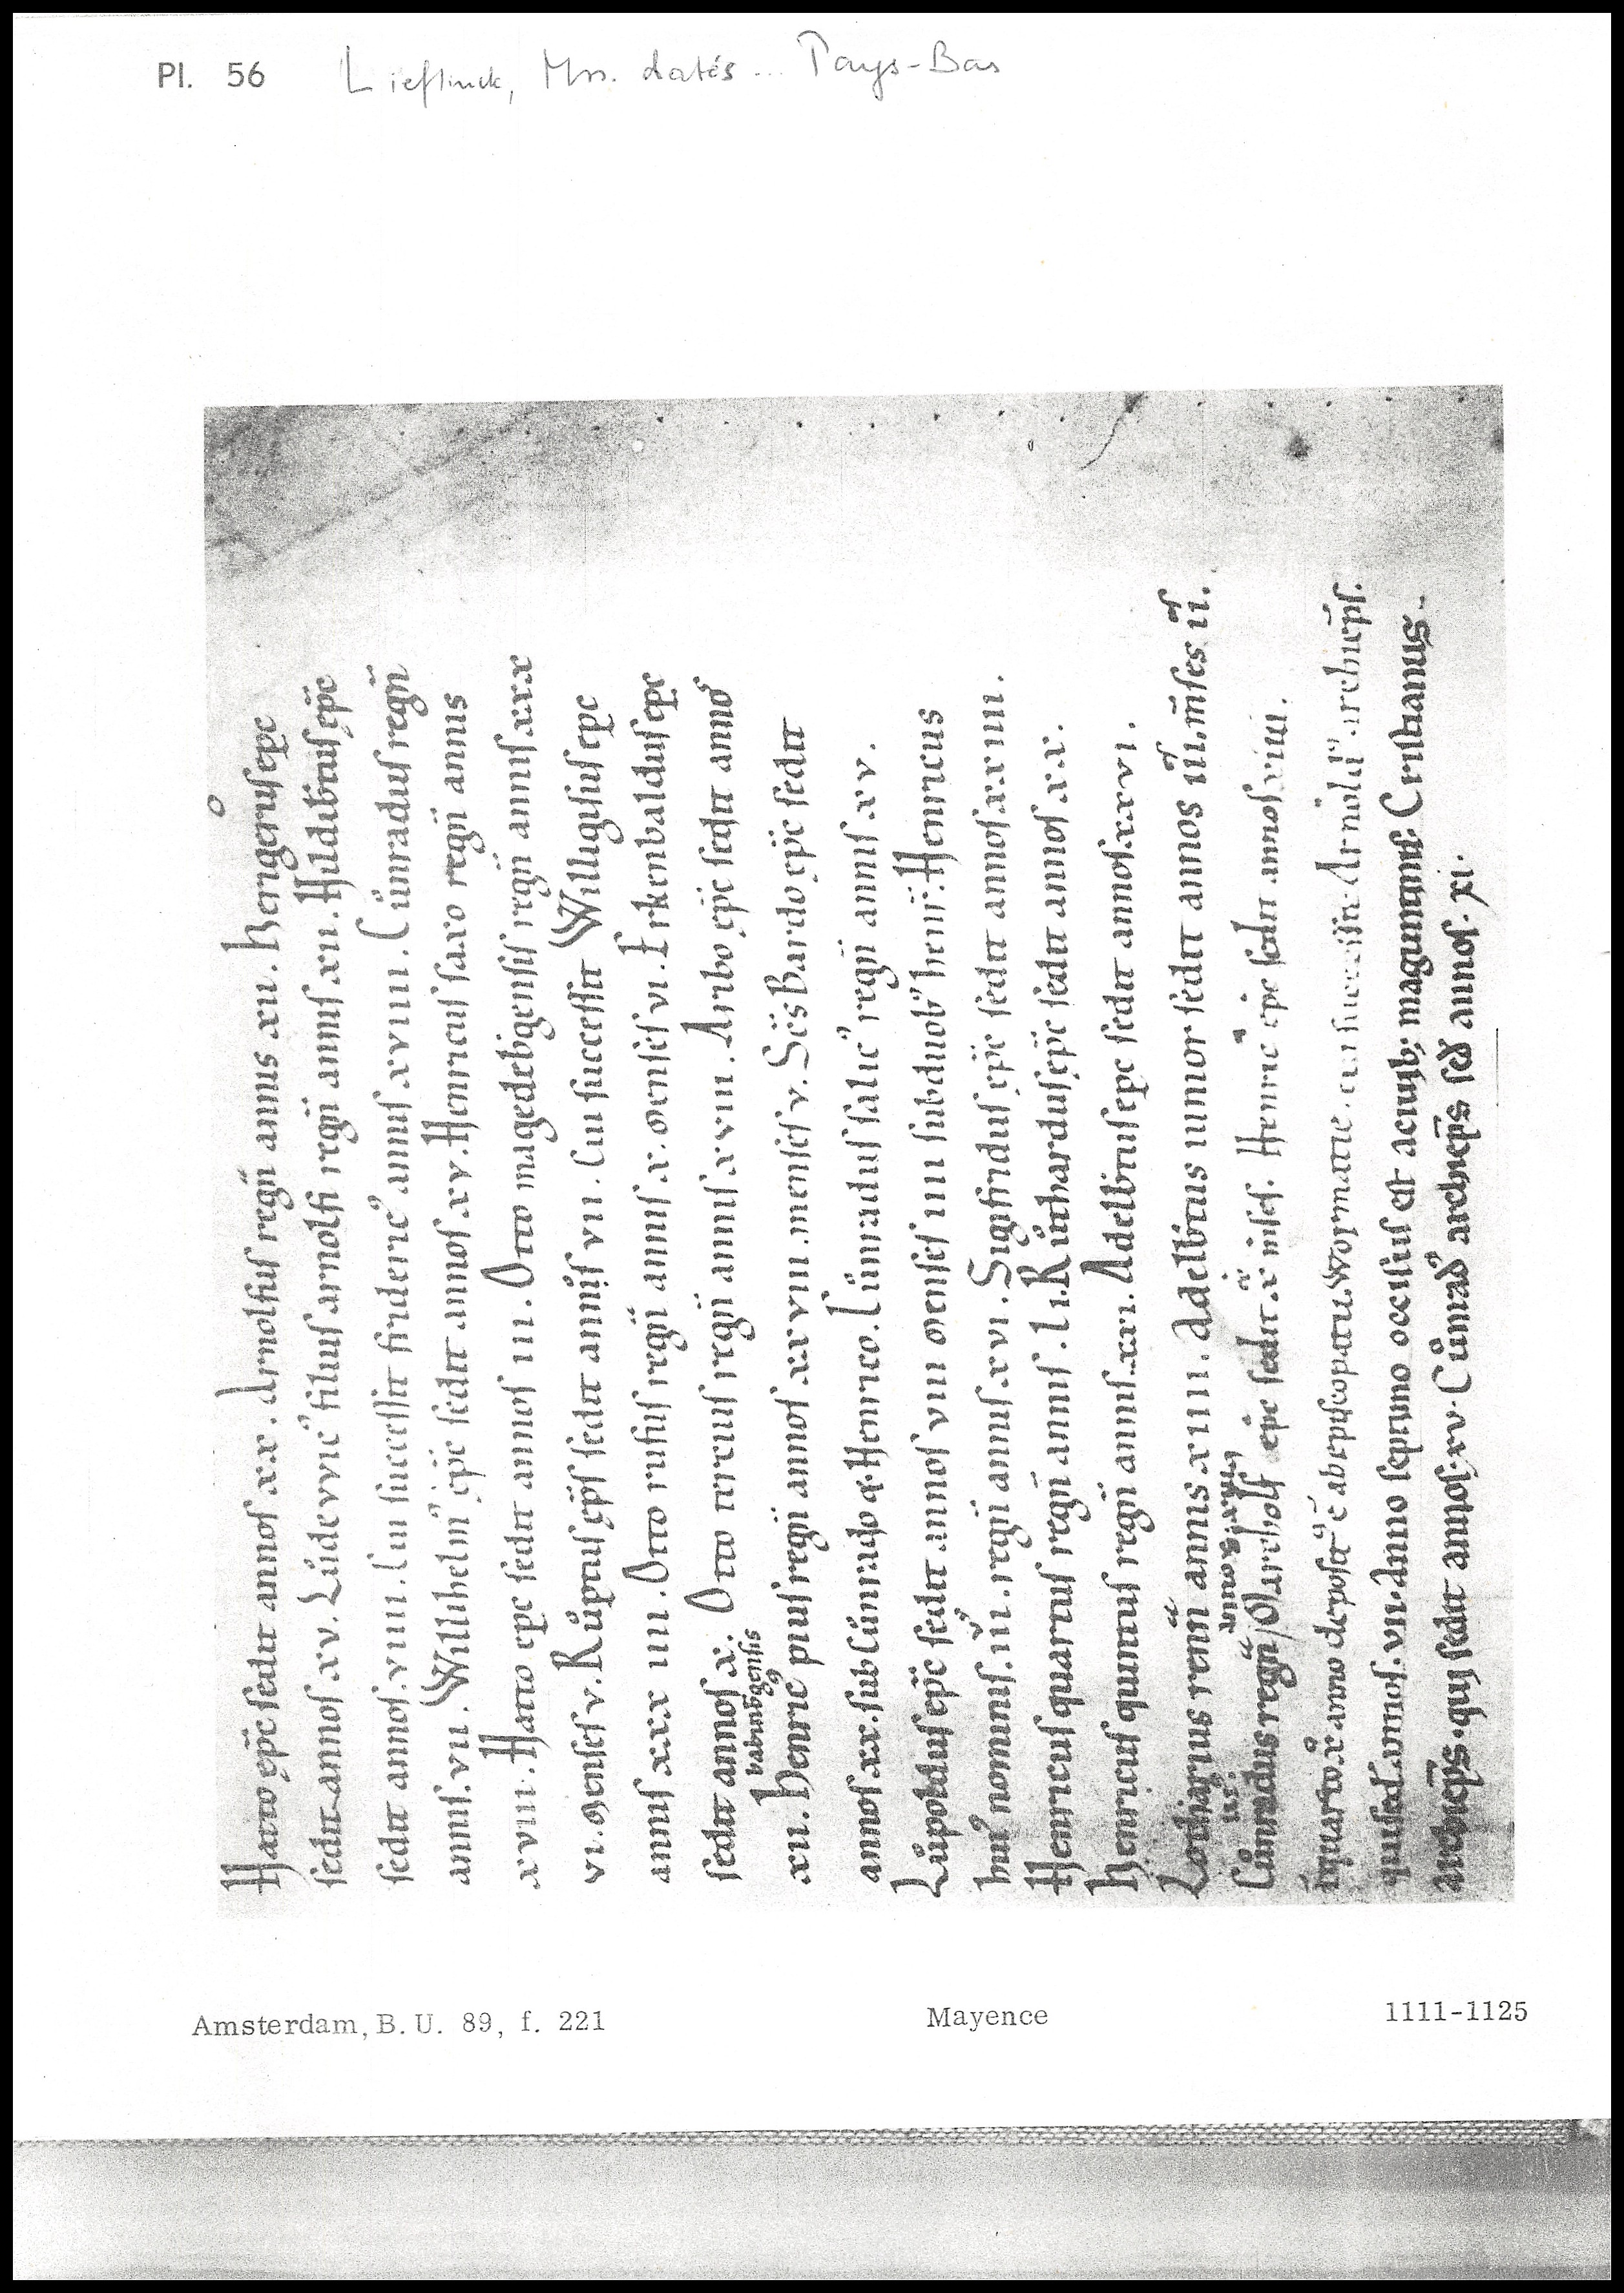 Pl. 56 Lieftinck, Mss. datés ... Pays-Bas
Hatto ep̄c sedit annos xx. Arnolfus regn̄ annis xii. herigerus epc
sedit annos xv. Lůdevvic᾿ filius arnolfi regn̄ annis xii. Hildib̄tus ep̄c
sedit annos viiii. Cui successit frideric᾿ annis xviiii. Cůnradus regn̄
annis vii. Willihelm᾿ ep̄c sedit annos xv. Henricus saxo regn̄ annis
xviii. Hatto epc sedit annos iii. Otto magedeb̄gensis regn̄ annis xxx
vi. menses v. Růp̄tus ep̄s sedit annis vi. Cui successit Willigisus epc
annis xxx iiii. Otto rufus regn̄ annis x. menses vi. Erkenbaldus epc
sedit annos x. Otto tercius regn̄ annis xviii. Aribo ep̄c sedit anno᷒
babinb̄gensis
xii. henric᾿ pius regn̄ annos xxviii. menses v. Sc̄s Bardo ep̄c sedit
annos xx. sub Cůnrado & Henrico. Cůnradus salic᾿ regn̄ annis xv.
Lůpoldus ep̄c sedit annos viii menses iiii sub duob᾿ henr̄. Henricus
hui᾿ nominis iii. regn̄ annis xvi. Sigifridus ep̄c sedit annos xxiiii.
Henricus quartus regn̄ annis. li. Růthardus ep̄c sedit annos xx.
henricus quintus regn̄ annis xxi. Adelb̄tus epc sedit annos xxvi.
Lotharius renn̄ annis xiiii. Adelb̄tus iunior sedit annos iii. m̄ses iii.
Cůnradus regn̄ Marcholf ep̄c sedit x m̄ses. Henric᾿ ep̄c sedit annos xiiii.
īquarto x anno deposit᾿ ē ab ep̄iscopatu wormatie. cui successit Arnold᾿ archiep̄s.
qui sed annos vii. Anno septimo occisus est a ciuib; maguntine Cristianus.
archiep̄s. qui sedit annos. xv. Cůnrad᾿ archiep̄s sed annos. xi.
Amsterdam, B.U. 89, f. 221 Mayence 1111-1125